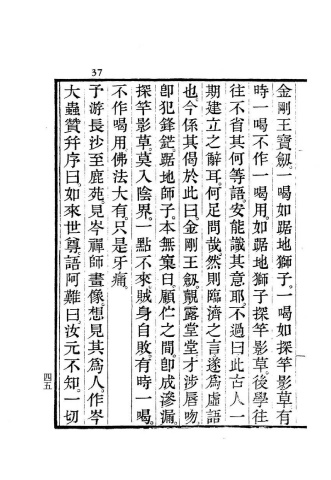 37
金剛王寶劒。一喝如踞地獅子。一喝如探竿影草。有
時一喝不作一喝用。如踞地獅子探竿影草。後學往
往不省其何等語。安能識其意耶。不過曰此古人一
期建立之辭耳。何足問哉。然則臨濟之言遂爲虛語
也。今係其偈於此曰。金剛王劒。覿露堂堂。才涉唇吻。
卽犯鋒鋩。踞地師子。本無窠臼。顧佇之間。卽成滲漏。
探竿影草。莫入陰界。一點不來。賊身自敗。有時一喝。
不作喝用。佛法大有。只是牙痛。
予游長沙至鹿苑。見岑禪師畫像。想見其爲人。作岑
大蟲贊幷序曰。如來世尊語阿難曰。汝元不知。一切
四五